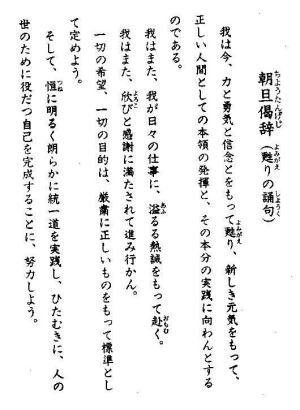 朝旦偈辞(甦りの誦句)
我は今、力と勇気と信念とをもって甦り、新しき元気をもって、
正しい人間としての本領の発揮と、その本分の実践に向わんとする
のである。
我はまた、我が日々の仕事に、溢るる熱誠をもって赴く。
我はまた、欣びと感謝に満たされて進み行かん。
一切の希望、一切の目的は、厳粛に正しいものをもって標準とし
て定めよう。
そして、恒に明るく朗らかに統一道を実践し、ひたむきに、人の
世のために役だつ自己を完成することに、努力しよう。